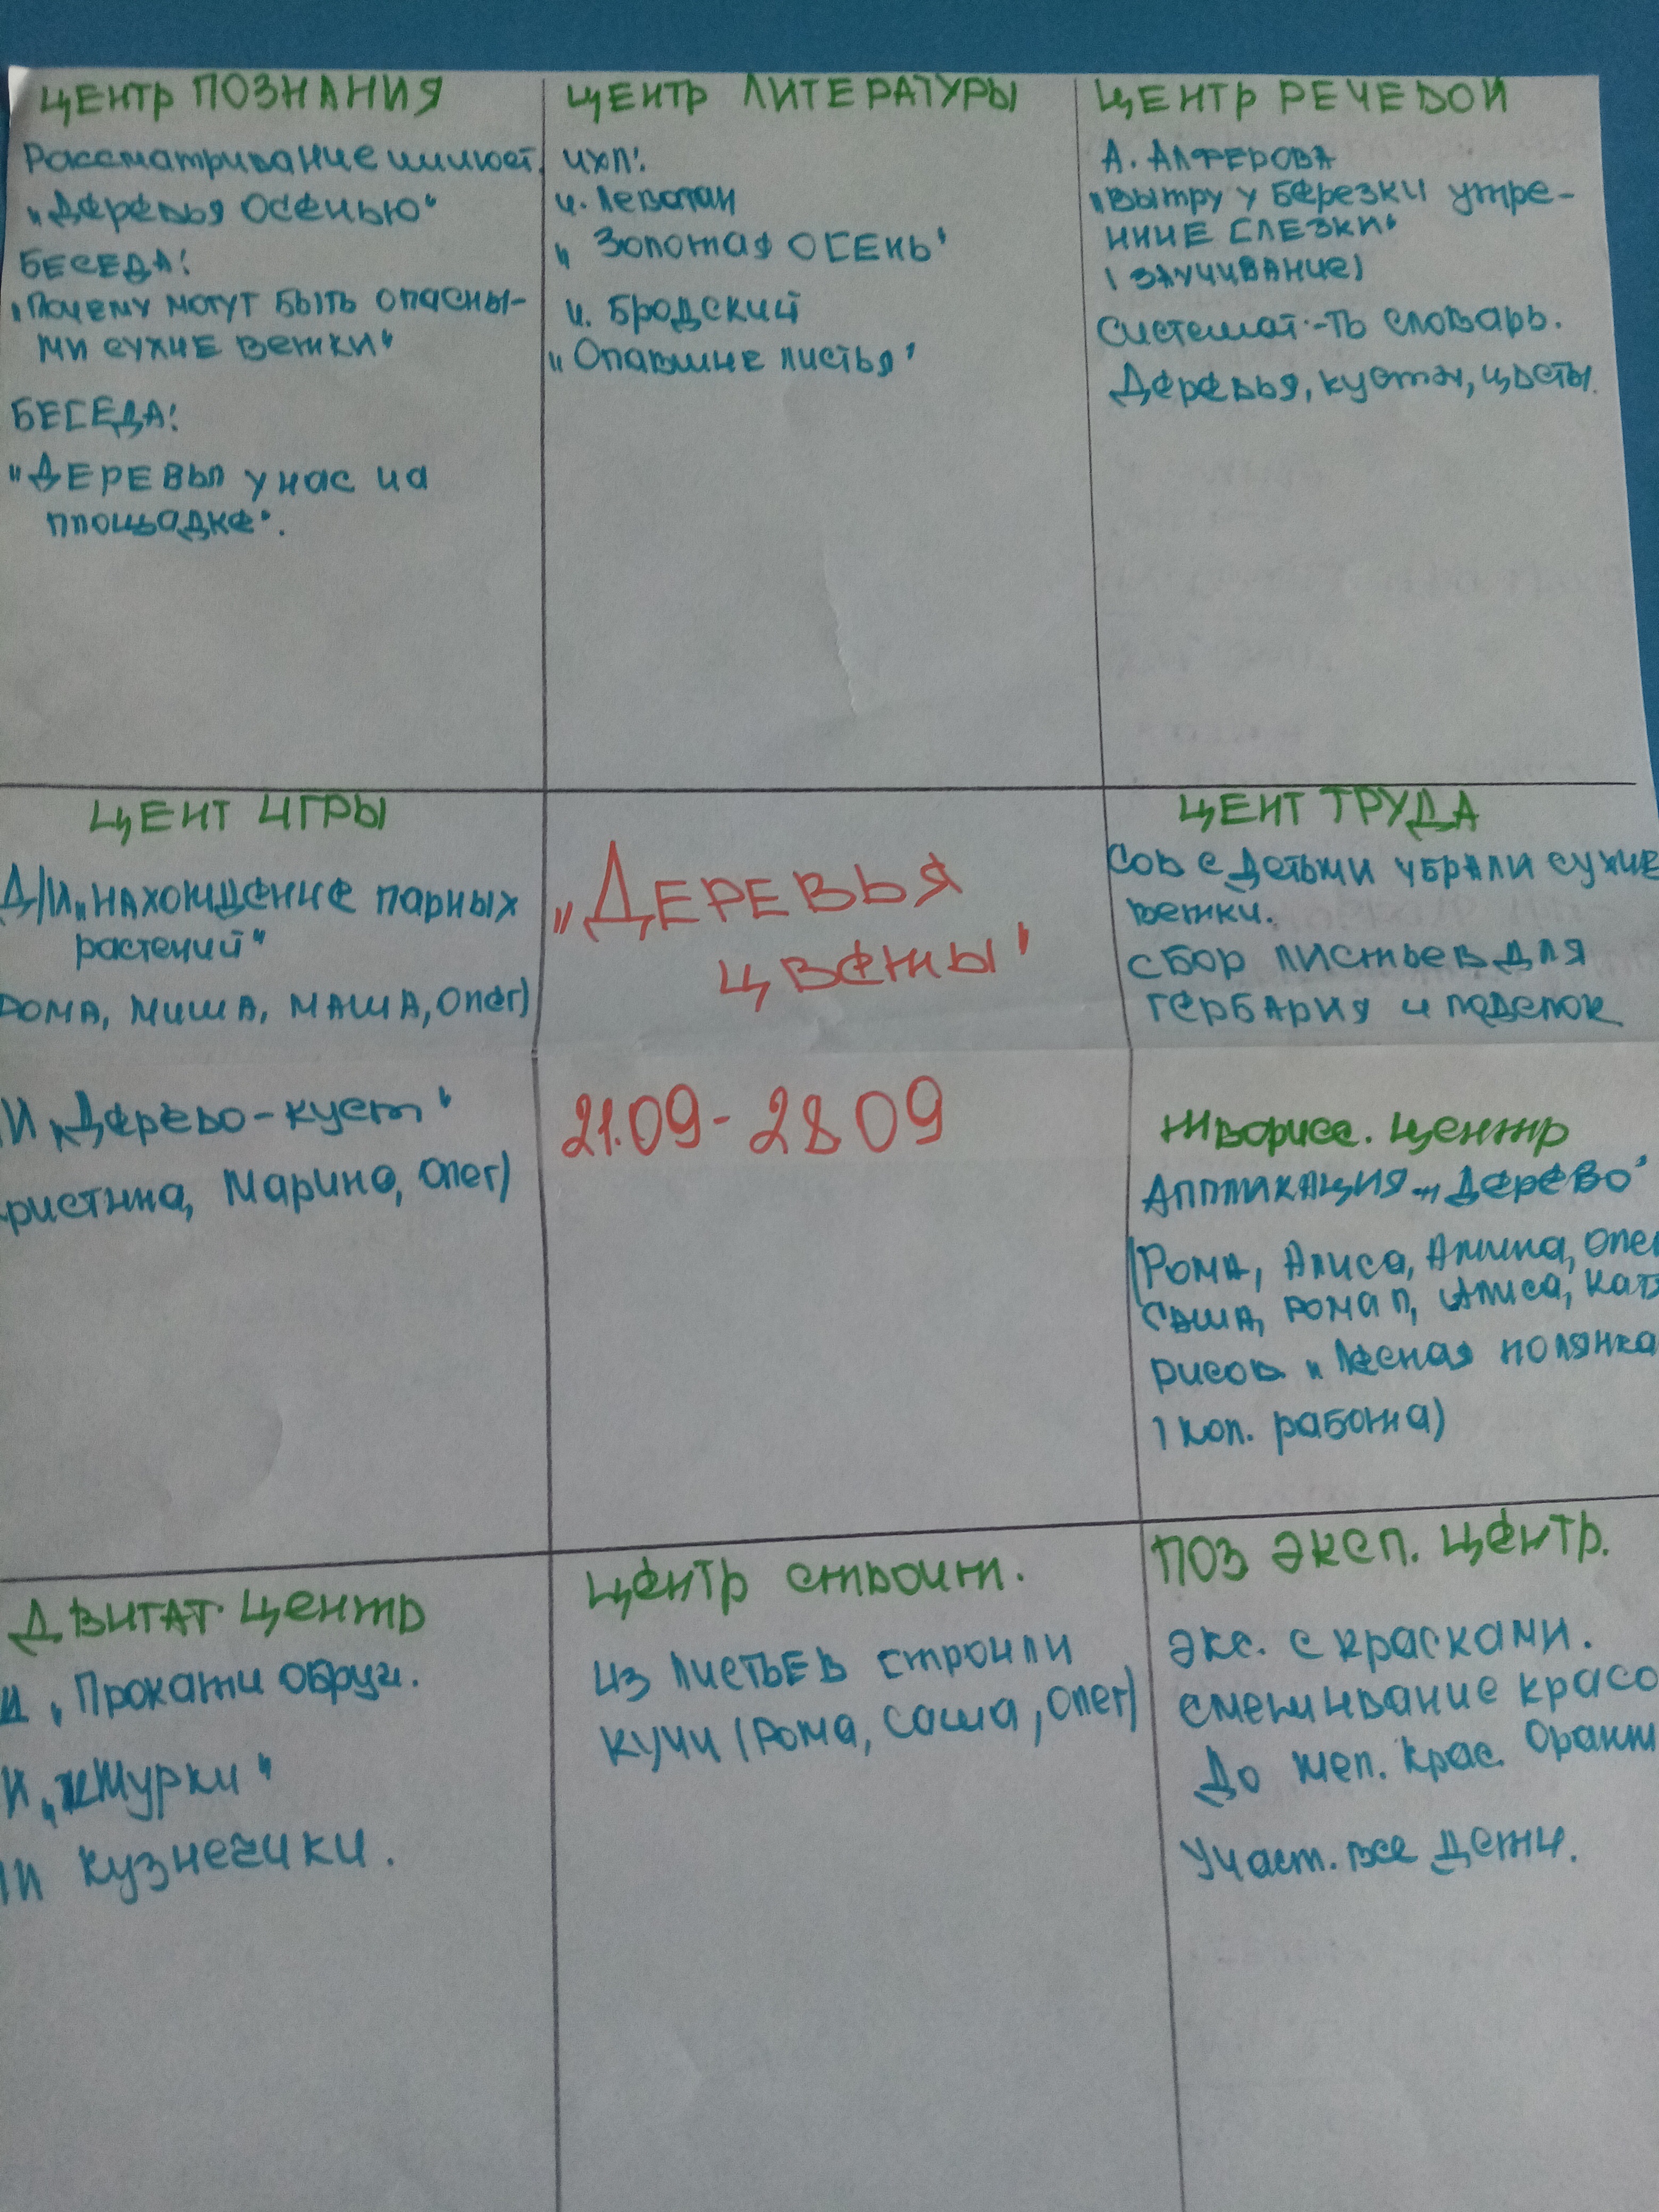 ЦЕНТР ПОЗНАНИЯ
Рассматривание иллюст.
„Деревья осенью"
БЕСЕДА:
„Почему могут быть опасны-
ми сухие ветки"
БЕСЕДА:
„Деревья у нас на
площадке".
ЦЕНТР ЛИТЕРАТУРЫ
ЧХЛ:
И. Левитан
„Золотая ОСЕНЬ"
И. Бродский
„Опавшие листья"
ЦЕНТР РЕЧЕВОЙ
А. АЛФЕРОВА
„Вытру у березки утре-
нние слезки"
(заучивание)
Системат-ть словарь.
Деревья, кусты, цветы.
ЦЕНТ ИГРЫ
Д/И „нахождение парных
растений"
РОМА, МИША, МАША, Олег)
И „Дерево-куст"
ристина, Марина, Олег)
„Деревья
цветы"
21.09-28 09
ЦЕНТ ТРУДА
Сов с детьми убрали сухие
ветки.
сбор листьев для
гербария и поделок
Творчес. центр
Аппликация „Дерево"
(Рома, Алиса, Амина, Олег
Саша, Рома П, Алиса, Кат
рисов „Лесная полянка
(кол. работа)
ДВИГАТ. Центр
И „Прокати обруч.
И „Жмурки"
И Кузнечики.
Центр строит.
Из листьев строили
кучи (Рома, Саша, Олег)
ПОЗ ЭКСП. Центр.
Экс. с красками.
смешивание красо
До жел. крас. Оранж
Участ. все дети.